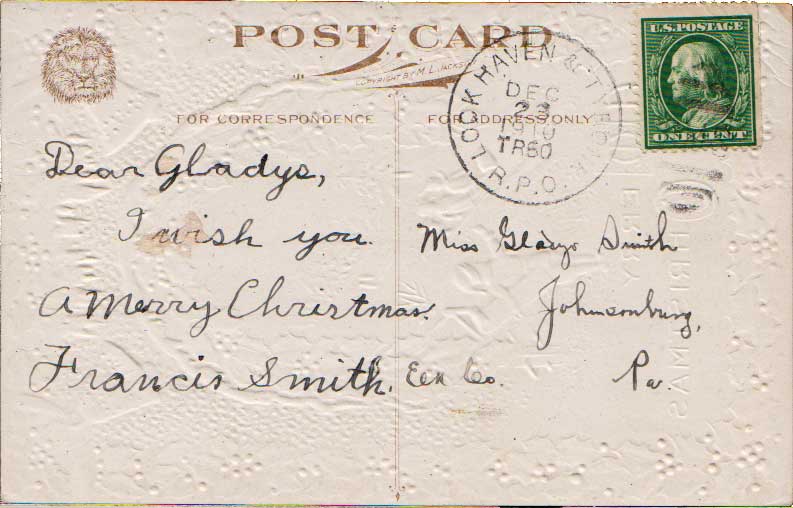 POST CARD
COPYRIGHT BY M. L. JACKSON
FOR CORRESPONDENCE
FOR ADDRESS ONLY
LOCK HAVEN & TYRONE R.P.O.
DEC
23
1910
TR60
U.S. POSTAGE
ONE CENT
Dear Gladys,
I wish you
a Merry Christmas.
Francis Smith.
Miss Gladys Smith
Johnsonburg,
Elk Co. Pa.
MERRY
CHRISTMAS